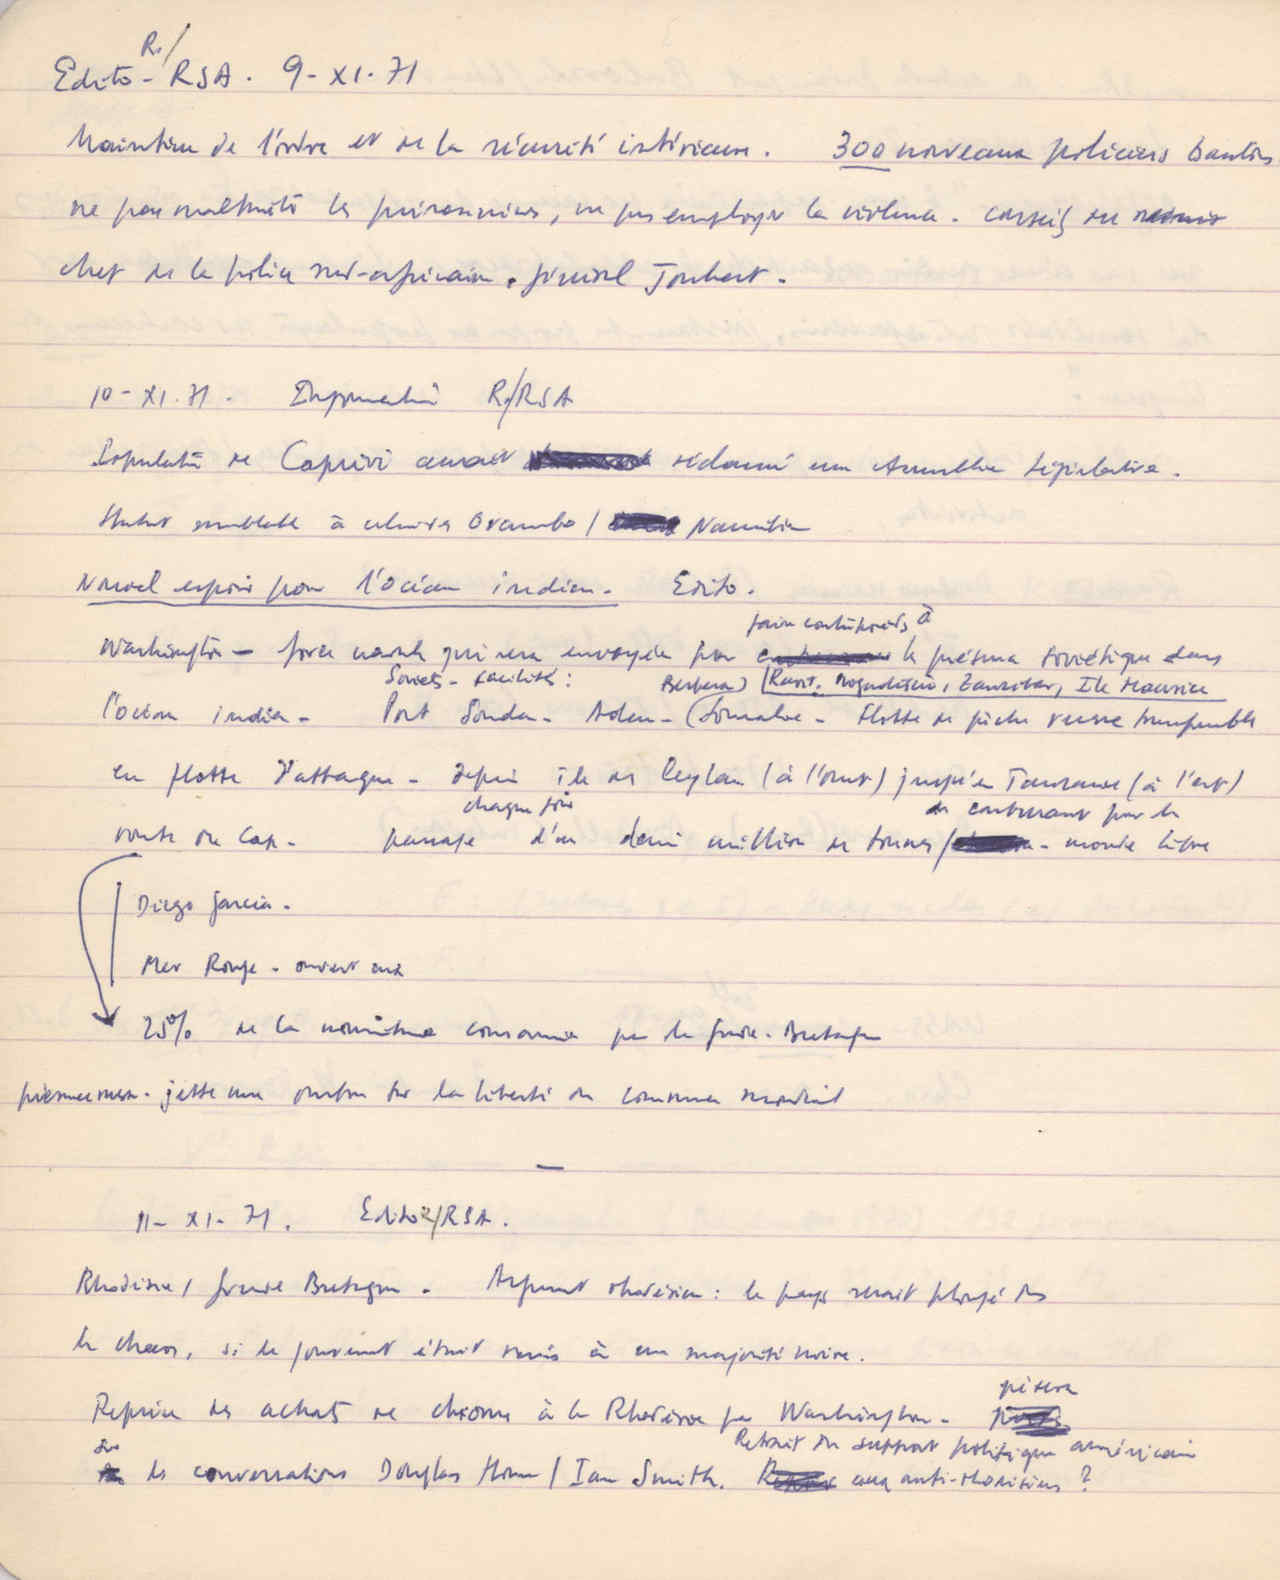 R./
Edito - RSA. 9-XI-71
Maintien de l'ordre et de la sécurité intérieure. 300 nouveaux policiers bantous
ne pas maltraiter les prisonniers, ne pas employer la violence. conseil du
chef de la police sud-africaine. général Joubert.
10-XI.71. Information R./RSA
Population de Caprivi aurait réclamé une Assemblée législative.
Statut semblable à celui des Ovambo / Namibie
Nouvel espoir pour l'Océan indien. Edito.
faire contrepoids à
Washington - force navale qui sera envoyée pour la présence soviétique dans
Soviets - facilités: Berbera) Mogadiscio, Zanzibar, Ile Maurice
l'océan indien - Port Soudan - Aden - (Somalie - flotte de pêche russe transformable
en flotte d'attaque - depuis île de Ceylan (à l'ouest) jusqu'en Tanzanie (à l'est)
chaque jour en contournant par le
route du Cap. passage d'un demi million de tonnes / - monde libre
Diego Garcia.
Mer Rouge - ouvert aux
25% de la nourriture consommée par la Grande-Bretagne
jette une ombre sur la liberté du commerce mondial
—
11-XI-71. Edito R/RSA.
Rhodésie / Grande Bretagne. Argument rhodésien: le pays serait plongé ds
le chaos, si le gouvernemt était remis à une majorité noire.
pèsera
Reprise des achats de chrome à la Rhodésie par Washington -
sur Retrait du support politique américain
les conversations Douglas Home / Ian Smith. aux anti-rhodésiens ?